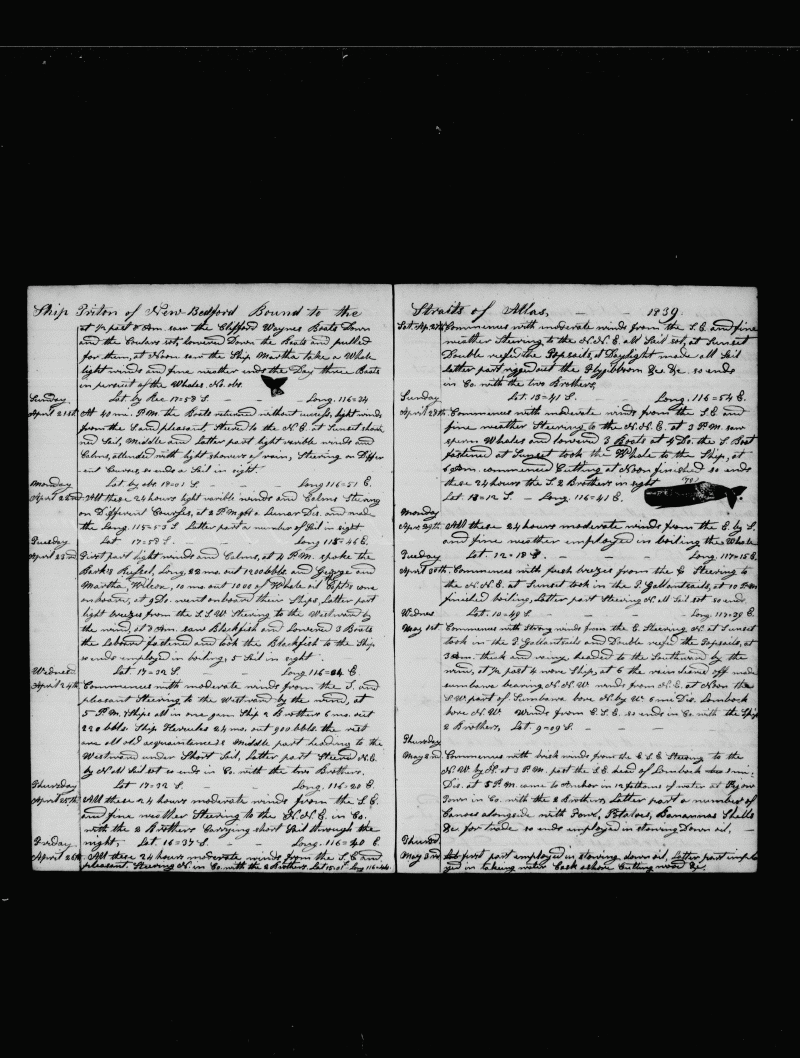 Ship Triton of New Bedford Bound to the
at ½ past 8 Am. saw the Clifford Waynes Boats Down
and the Colors set, lowered Down the Boats and pulled
for them, at Noon saw the Ship Martha take a Whale
light winds and fine weather ends the Day three Boats
in persuit of the Whales. No obs.
Sunday Lat by Rec 17=58 S. Long. 116=24
April 21st At 40 min. P.M the Boats returned without success, light winds
from the S and pleasant Steerd to the N.E. at Sunset short-
ned Sail, Middle and Latter part light varible winds and
Calms, attended with light showers of rain, Steering on Differ
ent Courses, so ends a Sail in sight.
Monday Lat by obs 18=01 S. Long 116=51 E.
April 22nd All these 24 hours light varible winds and Calms Steering
on Different Courses, at 2 P.M got a Lunar Dis. and made
the Long. 115=53 S Latter part a number of Sail in sight
Tuesday Lat 17=59 S. Long 115=46 E.
April 23rd First part light winds and Calms, at 4 P.M. spoke the
Barks Russel, Long, 22 mo. out 1200 bbls. and George and
Martha, Wilcox, 10 mo. out 1000 of Whale oil Capts come
on board, at 9 Do. went onboard their Ships, Latter part
light breezes from the S.S.W Steering to the Westward by
the wind, at 8 Am. saw Blackfish and Lowered 3 Boats
the Larboard fastened and took the Blackfish to the Ship
so ends employed in boiling, 5 Sail in sight.
Wednes Lat 17=32 S. Long 116=04 E.
April 24th Commences with moderate winds from the S. and
pleasant Steering to the Westward by the wind, at
5 P.M. 4 Ships all in one gam Ship 2 Brothers 6 mo. out
220 bbls. Ship Hercules 24 mo. out 900 bbls. the rest
are all old acquaintances Middle part heading to the
Westward under Short Sail, Latter part Steered N.E.
by N. All Sail set so ends in Co. with the two Brothers.
Thursday Lat 17=22 S. Long. 116=20 E.
April 25th All these 24 hours moderate winds from the S.E.
and fine weather Steering to the N.N.E. in Co.
with the 2 Brothers Carrying short Sail through the
night. Lat. 16=37 S. Long. 116=40 E.
Friday
April 26th All these 24 hours moderate winds from the S.E and
pleasant. Steering N. in Co. with the 2 Brothers Lat 15=01 Long 116=44
Straits of Allas, 1839
Sat Ap. 27th Commences with moderate winds from the S.E. and fine
weather Steering to the N.N.E. all Sail set, at Sunset
Double reefd the Topsails, at Daylight made all Sail
latter part rigged out the Flyjibboom &c &c. so ends
in Co. with the two Brothers,
Sunday Lat. 13=41 S. Long. 116=54 E.
April 28th Commences with moderate winds from the S.E. and
fine weather Steering to the N.N.E. at 3 P.M. saw
sperm Whales and lowered 3 Boats at 4 Do. the S. Boat
fastened at Sunset took the Whale to the Ship, at
6 Am. commenced Cutting at Noon finished so ends
these 24 hours the S. 2 Brothers in sight
Lat 13=12 S. Long. 116=41 E.
70
Monday
Apr 29th All these 24 hours moderate winds from the E. by S.
and fine weather employed in boiling the Whale
Tuesday Lat. 12=18 S. Long. 117=15 E.
April 30th Commences with fresh breezes from the E Steering to
the N.N.E. at Sunset took in the T. Gallantsails, at 10 P.M
finished boiling, Latter part Steering N. All Sail set so ends
Wednes Lat. 10=49 S. Long. 117=29 E.
May 1st Commences with Strong winds from the E. Steering N. at Sunset
took in the T. Gallantsails and Double reefd the Topsails, at
3 Am. thick and rainy, headed to the Southward by the
wind, at ½ past 4 wore Ship, at 6 the rain cleard off made
Sumbawa bearing N.N.W winds from N.E. at Noon the
S.W part of Sumbawa bore N. by W. 6 mi Dis. Lomback
bore N.W. Winds from E.S.E. so ends in Co. with the Ship
2 Brothers, Lat. 9=09 S.
Thursday
May 2nd Commences with brisk winds from the E.S.E Steering to the
N.W. by N. at 3 P.M. past the S.E. head of Lomback 3 mi.
Dis. at 5 P.M. came to Anchor in 12 fathoms of water at
Town in Co. with the 2 Brothers, Latter part a number of
Canoes alongside with Fowl, Potatoes, Bananas Shells
&c for trade so ends employed in stowing Down oil,
Thursd.
May 3rd first part employed in stowing down oil, Latter part emplo
yed in taking water Cask ashore Cutting wood &c.